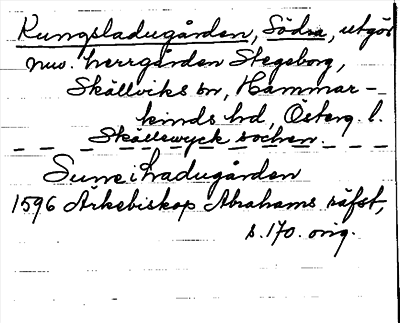 Kungsladugården, Södra, utgör
nuv. herrgården Stegeborg,
Skällviks sn, Hammar-
kinds hd, Österg. l.
Skällewyck sochen
Sune i Ladugården
1596 Ärkebiskop Abrahams räfst,
s. 170. orig.